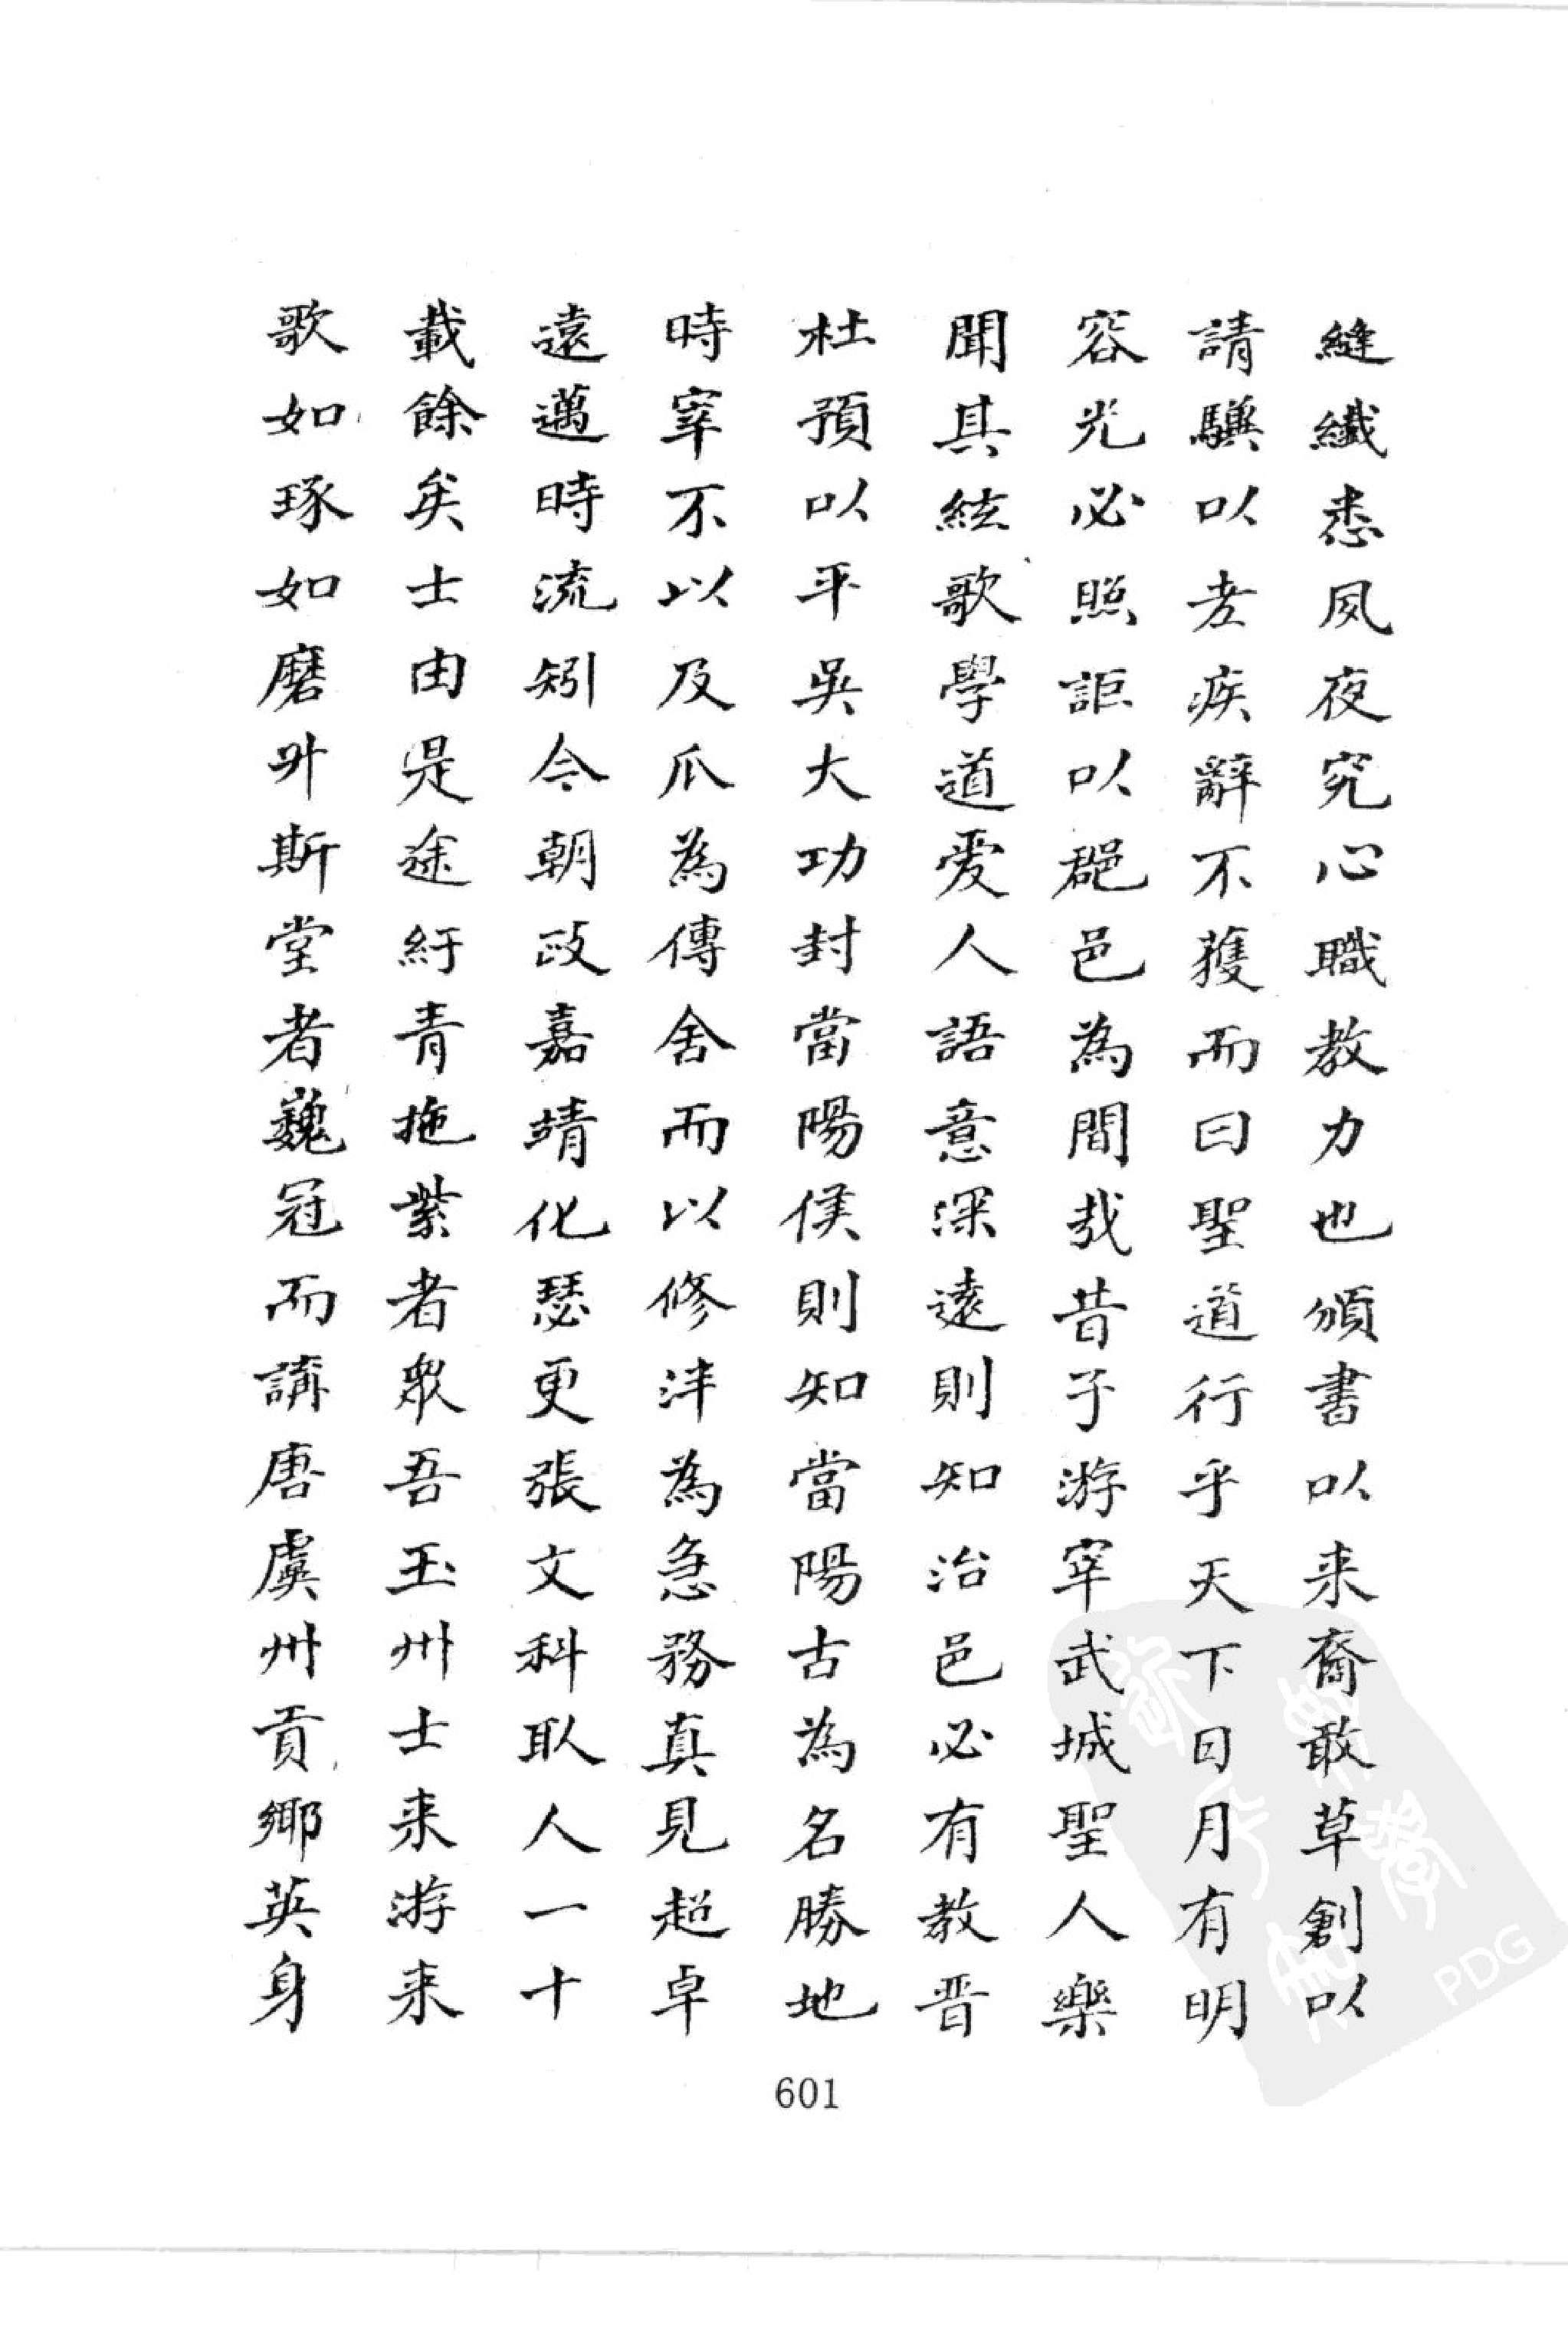 縫纎悉夙夜究心職教力也頒書以来裔敢草創以
請驥以老疾辭不獲而曰聖道行乎天下日月有明
容光必照詎以郶邑為間哉昔子游宰武城聖人樂
聞其絃歌學道爱人語意深遠則知治邑必有教晋
杜預以平吳大功封當陽侯則知當陽古為名勝地
時宰不以及瓜為傳舍而以修泮為急務真見超卓
遠邁時流矧今朝政嘉靖化瑟更張文科取人一十
載餘矣士由是途紆青拖紫者衆吾玉州士来游来
歌如琢如磨升斯堂者巍冠而講唐虞州貢鄉英身
601
PDG